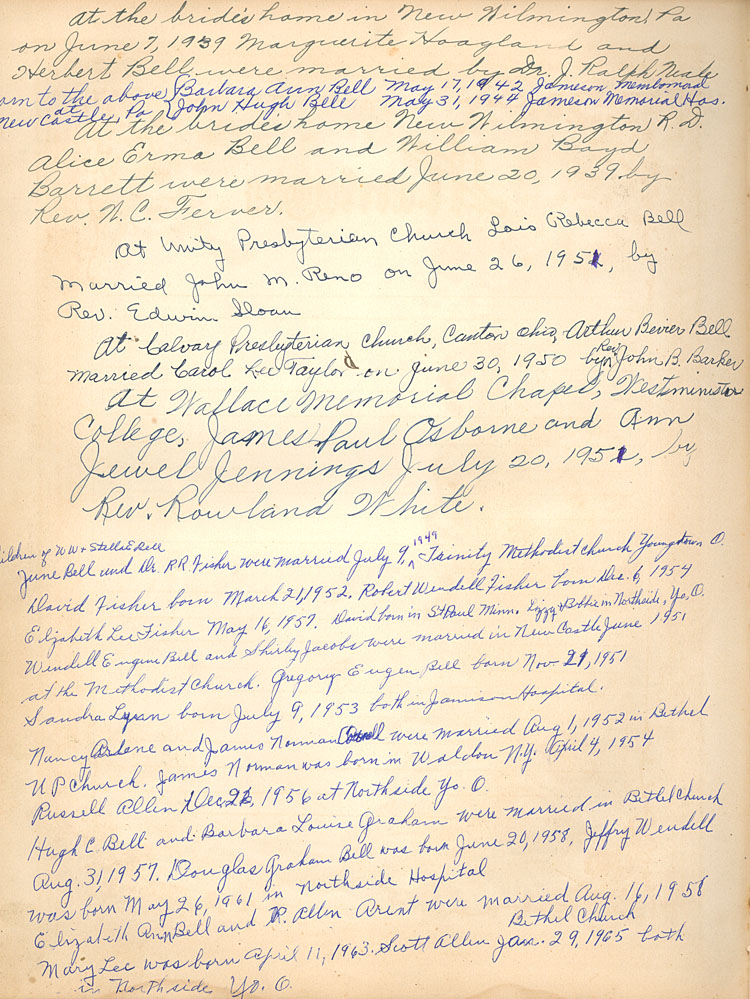 At the bride's home in New Wilmington, Pa
on June 7, 1939 Marguerite Hoagland and
Herbert Bell were married by Dr. J. Ralph Neale
orn to the above {Barbara Ann Bell May 17, 1942 Jameson
New Castle, Pa {John Hugh Bell May 31, 1944 Jameson Memorial Hos.
at
At the brides home New Wilmington R.D.
Alice Erma Bell and William Boyd
Barrett were married June 20, 1939 by
Rev. N.C. Ferver.
At Unity Presbyterian Church Lois Rebecca Bell
Married John M. Reno on June 26, 1951, by
Rev. Edwin Sloan
At Calvary Presbyterian Church, Canton Ohio, Arthur Bevier Bell
Married Carol Lee Taylor on June 30, 1950 by Rev. John B. Barker
At Wallace Memorial Chapel, Westminister
College, James Paul Osborne and Ann
Jewel Jennings July 20, 1951, by
Rev. Rowland White.
ildren of W W & Stella E Bell
June Bell and Dr. R R Fisher were married July 9, 1949 Trinity Methodist church Youngstown O.
David Fisher born March 21, 1952, Robert Wendell Fisher born Dec. 6, 1954
Elizabeth Lee Fisher May 16, 1957. David born in St Paul Minn. Lizzy & Bobbie in Northside, Yo, O.
Wendell Eugene Bell and Shirley Jacobs were married in New Castle June 1951
at the Methodist Church. Gregory Eugen Bell born Nov 21, 1951
Sandra Lynn born July 9, 1953 both in Jamison Hospital.
Nancy Ardene and James Norman were married Aug 1, 1952 in Bethel
U P Church. James Norman was born in Waldon N.Y. April 4, 1954
Russell Allen Dec 22, 1956 at Northside Yo. O.
Hugh C. Bell and Barbara Louise Graham were married in Bethel Church
Aug. 31, 1957. Douglas Graham Bell was born June 20, 1958, Jeffry Wendell
was born May 26, 1961 in Northside Hospital
Elizabeth Ann Bell and R. Allen Arent were married Aug. 16, 1958
Bethel Church
Mary Lee was born April 11, 1963. Scott Allen Jan. 29, 1965 both
in Northside Yo. O.